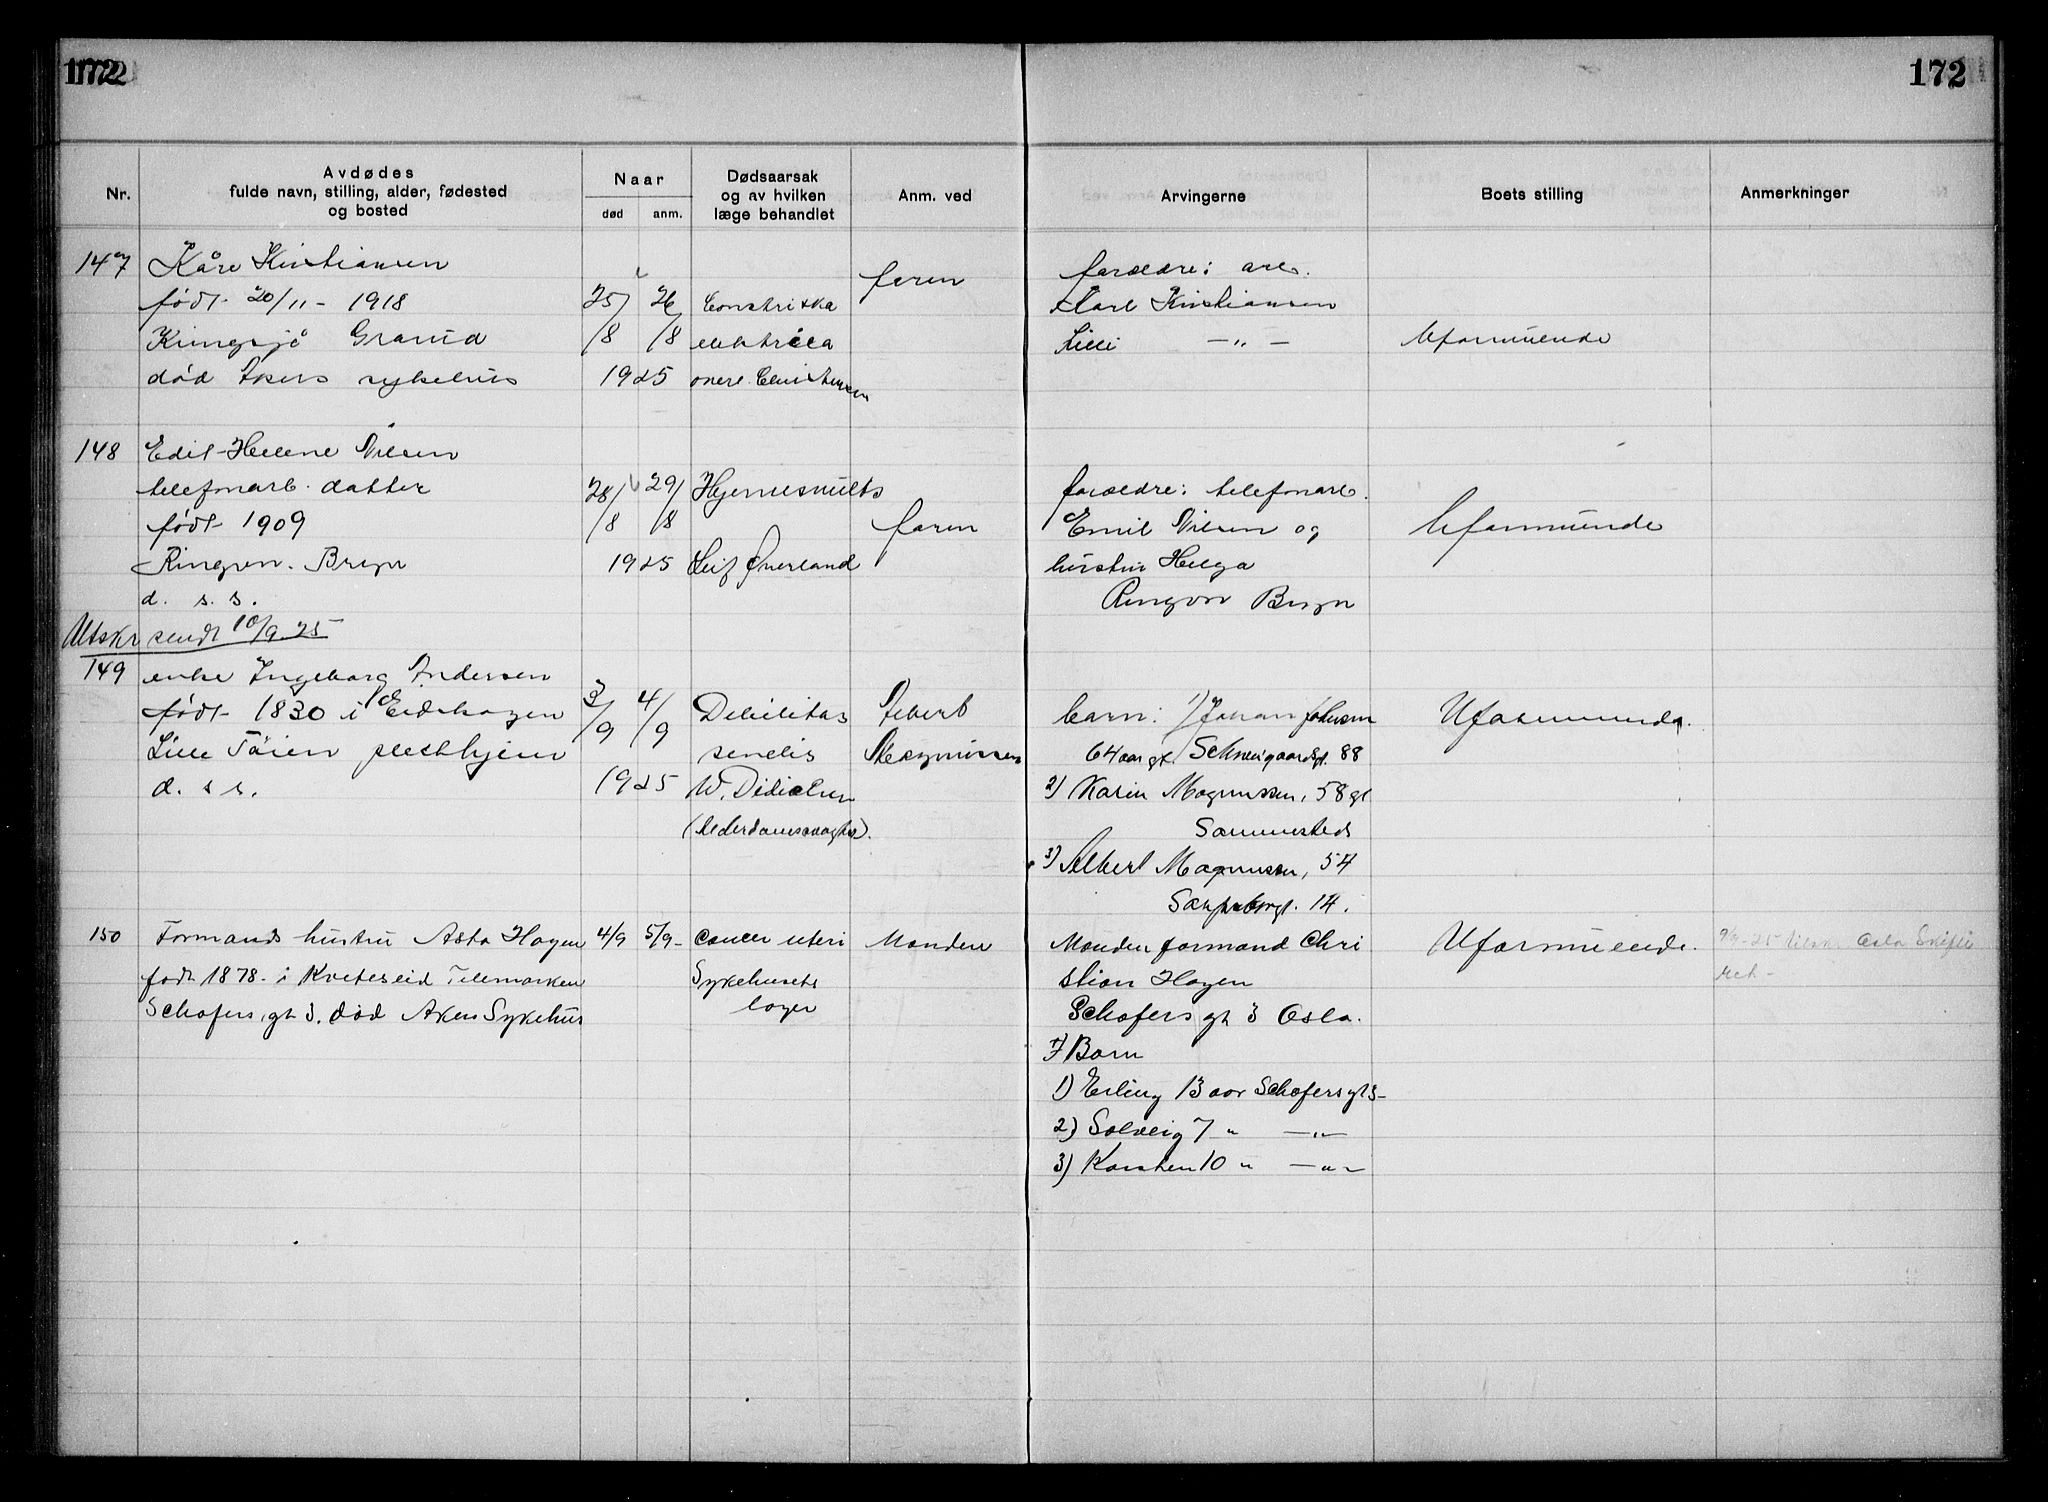 172
172
Nr.
Avdødes
fulde navn, stilling, alder, fødested
og bosted
Naar
død
anm.
Dødsaarsak
og av hvilken
læge behandlet
Anm. ved
Arvingerne
Boets stilling
Anmerkninger
147
Kåre Kristiansen
født 20/11 - 1918
Grorud
død Akers sykehus
25/8 26/8
1925
faren
forældre: arb.
Karl Kristiansen
Lilli — „ —
Uformuende
148
Edit Helene Nilsen
telefonarb. datter
født 1909
Ringvn. Bryn
d. s. s.
28/8 29/8
1925
Leif Øverland
faren
forældre: telefonarb.
Emil Nilsen og
hustru Helga
Ringvn Bryn
Uformuende
Utskr sendt 10/9 25
149
enke Ingeborg Andersen
født 1830 i
Lille Tøien pleiehjem
d. s s.
3/9 4/9
1925
Debilitas
senilis
Albert
Magnussen
barn: 1) Johan Johnsen
64 aar gl. Schweigaardsgt. 88
2) Karin Magnussen, 58 gl
Sammesteds
3) Albert Magnussen, 54
14.
Uformuende.
150
Formands hustru Asta Hagen
født 1878 - i Kviteseid Telemarken
Schafers gt 3. død Akers Sykehus
4/9 5/9 -
Cancer uteri
Sykehusets
læger
Manden
Manden formand Chri
stian Hagen
Schafers gt 3 Oslo.
7 Barn
1) Erling 13 aar Schafers gt 3 -
2) Solveig 7 " — „ —
3) Karsten 10 " — „ —
Uformuende.
9/9 - 25 Utskr Oslo Skifte
ret -